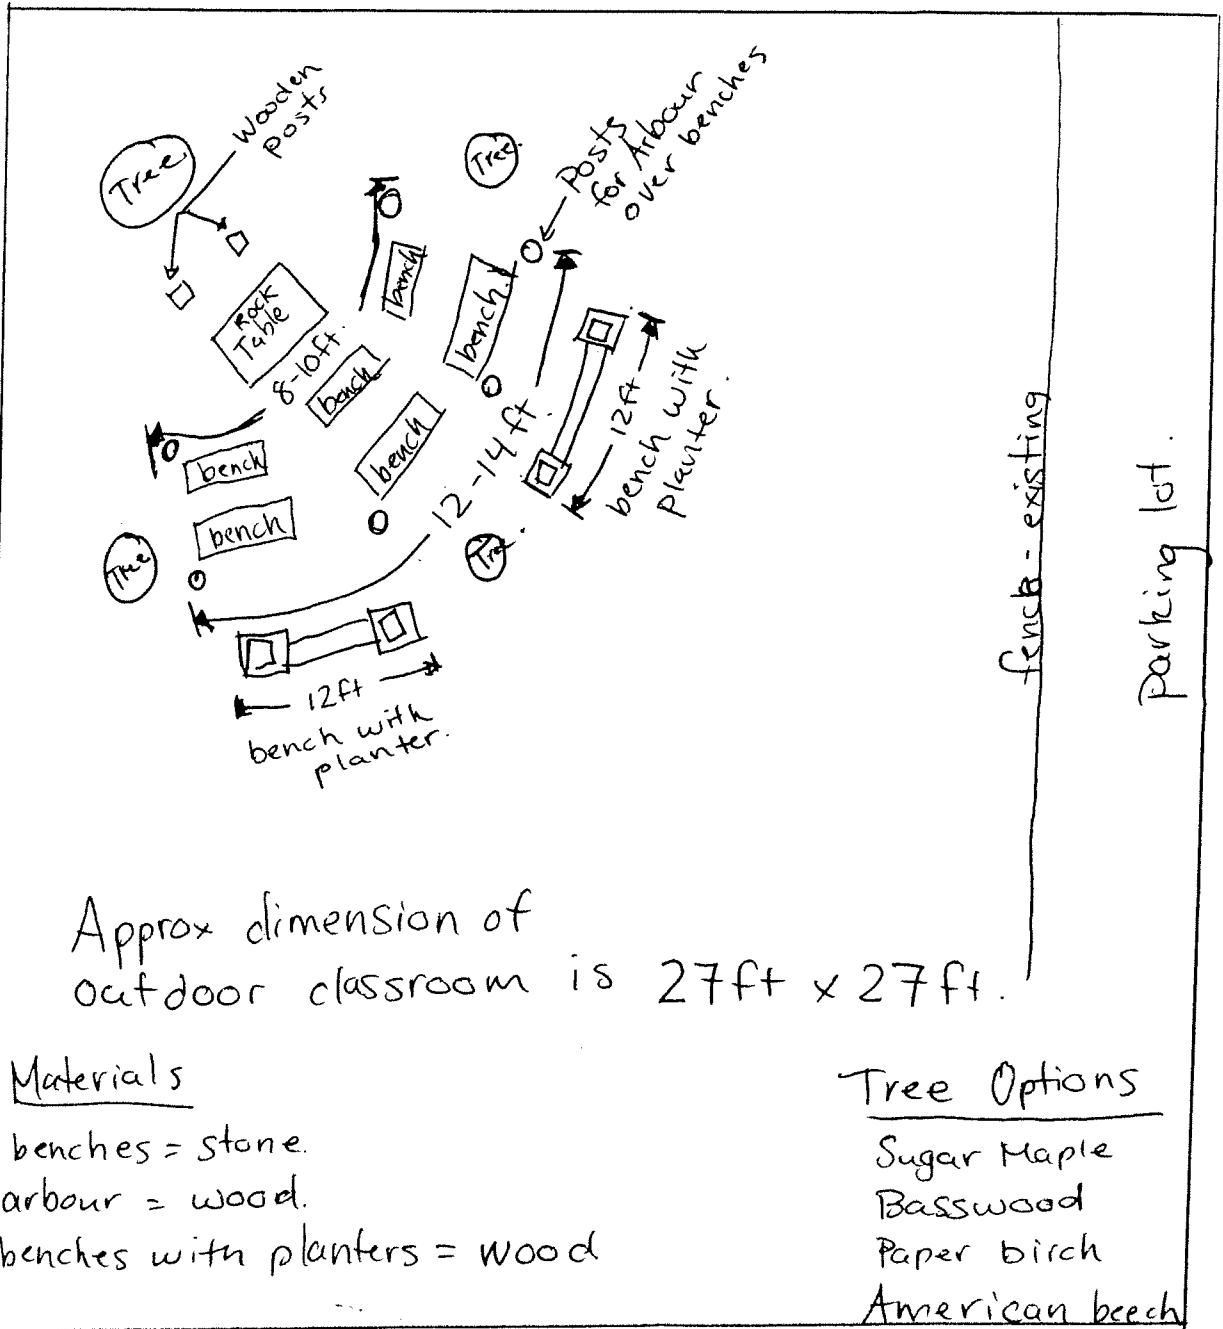 Wooden
posts
Tree
Tree.
Posts
for Arbour
over benches
Rock
Table
8-10ft.
bench
bench
bench
bench
bench
bench
12-14 ft.
12ft
bench with
planter.
Tree
Tree.
12ft
bench with
planter.
fence - existing
parking lot.
Approx dimension of
outdoor classroom is 27ft x 27ft.
Materials
benches = stone.
arbour = wood.
benches with planters = wood
Tree Options
Sugar Maple
Basswood
Paper birch
American beech